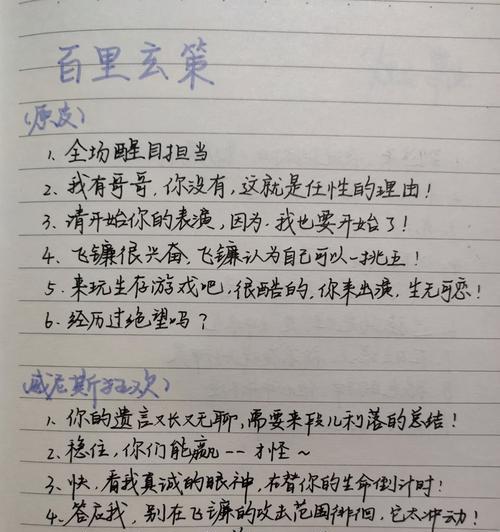 百里玄策
(原皮)
1、全场醒目担当
2、我有哥哥,你没有,这就是任性的理由!
3、请开始你的表演,因为.我也要开始了!
4、飞镰很兴奋、飞镰认为自己可以一挑五!
5、来玩生存游戏吧,很酷的,你来出演,生无可恋!
6、经历过绝望吗?
(威尼斯狂欢)
1、你的遗言又长又无聊,需要来段儿利落的总结!
2、稳住,你们能赢--才怪~
3、快、看我真诚的眼神,在替你的生命倒计时!
4、答应我,别在飞镰的攻击范围徘徊,它太冲动!